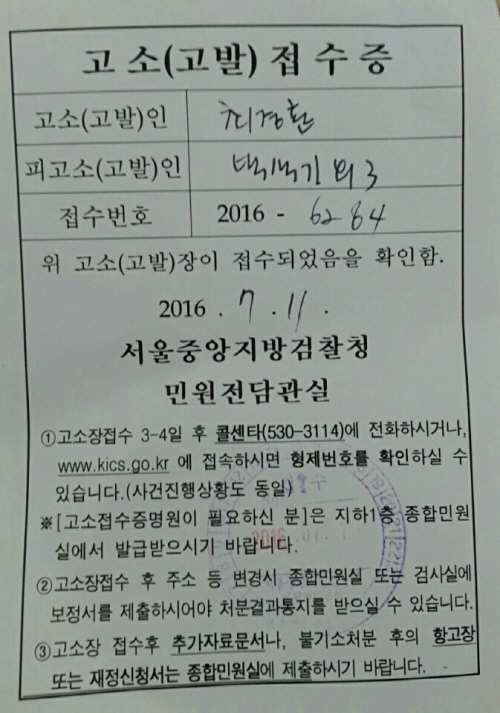 고 소(고발) 접 수 증
고소(고발)인 최경환
피고소(고발)인 외 3
접수번호 2016 - 6284
위 고소(고발)장이 접수되었음을 확인함.
2016 . 7 . 11 .
서울중앙지방검찰청
민원전담관실
①고소장접수 3-4일 후 콜센타(530-3114)에 전화하시거나,
www.kics.go.kr 에 접속하시면 형제번호를 확인하실 수
있습니다.(사건진행상황도 동일)
※[고소접수증명원이 필요하신 분]은 지하1층 종합민원
실에서 발급받으시기 바랍니다.
②고소장접수 후 주소 등 변경시 종합민원실 또는 검사실에
보정서를 제출하시어야 처분결과통지를 받으실 수 있습니다.
③고소장 접수후 추가자료문서나, 불기소처분 후의 항고장
또는 재정신청서는 종합민원실에 제출하시기 바랍니다.